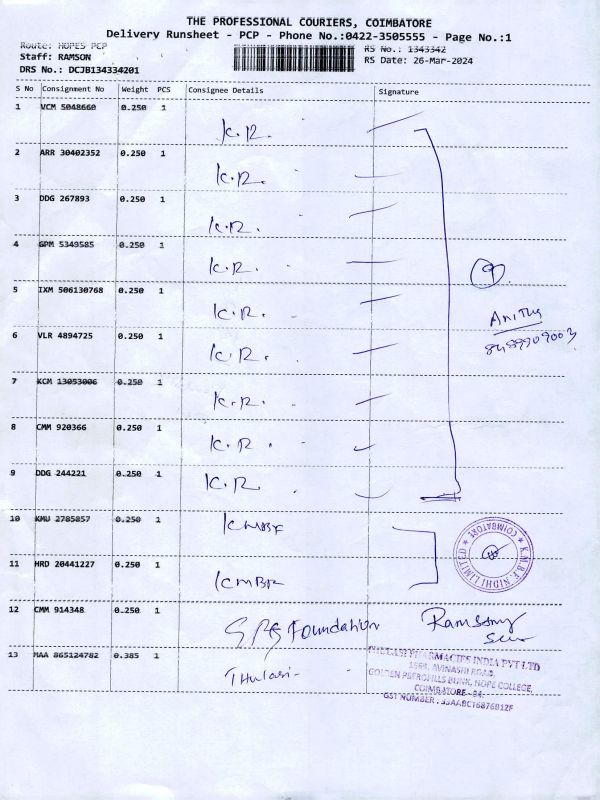 THE PROFESSIONAL COURIERS, COIMBATORE
Delivery Runsheet - PCP - Phone No.:0422-3505555 - Page No.:1
Route: HOPES PCP
RS No.: 1343342
Staff: RAMSON
RS Date: 26-Mar-2024
DRS No.: DCJB134334201
S No Consignment No Weight PCS Consignee Details Signature
1 VCM 5048660 0.250 1
K.R.
2 ARR 30402352 0.250 1
K.R.
3 DDG 267893 0.250 1
K.R.
4 GPM 5349585 0.250 1
K.R.
9
5 IXM 506130768 0.250 1
K.R.
Anitha
6 VLR 4894725 0.250 1
K.R.
7 KCM 13053006 0.250 1
K.R.
8 CMM 920366 0.250 1
K.R.
9 DDG 244221 0.250 1
K.R.
10 KMU 2785857 0.250 1
KMBF
K.M.B.F. NIDHI LIMITED * COIMBATORE *
11 HRD 20441227 0.250 1
KMBF
12 CMM 914348 0.250 1
Foundation
13 MAA 865124782 0.385 1
Thulasi
THULASI PHARMACIES INDIA PVT LTD
AVINASHI ROAD,
BUNK, HOPE COLLEGE,
COIMBATORE - 04.
GST NUMBER :